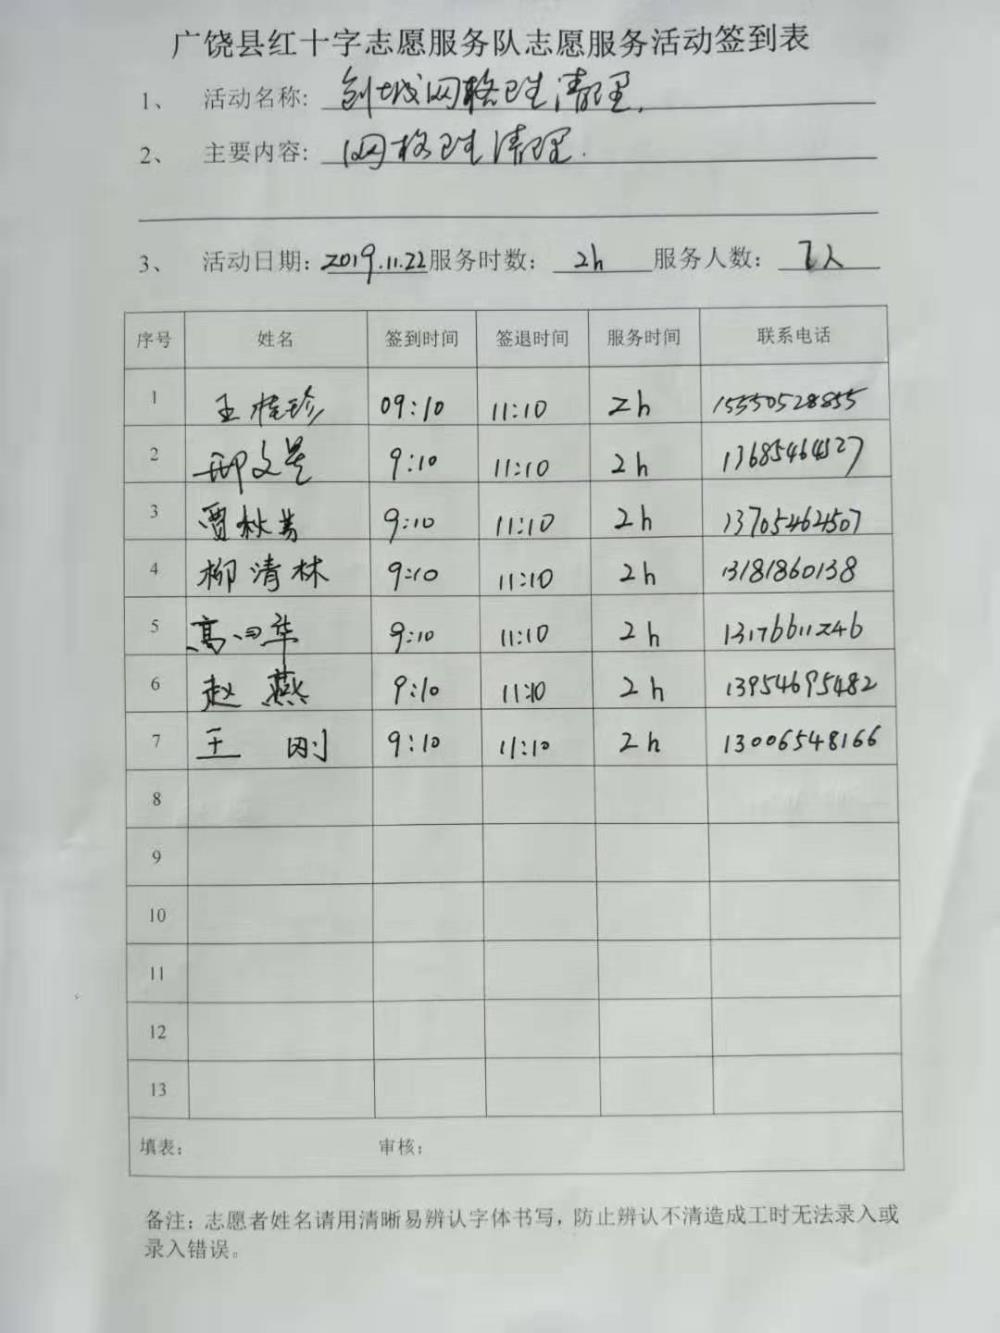 广饶县红十字志愿服务队志愿服务活动签到表
1、 活动名称: 创城网格卫生清理.
2、 主要内容: 网格卫生清理.
3、 活动日期: 2019.11.22 服务时数: 2h 服务人数: 7人
序号 姓名 签到时间 签退时间 服务时间 联系电话
1 王桂珍 09:10 11:10 2h 15550528855
2 邢文 9:10 11:10 2h
3 贾秋芳 9:10 11:10 2h 13705464507
4 柳清林 9:10 11:10 2h 13181860138
5 高 华 9:10 11:10 2h 13176611246
6 赵燕 9:10 11:10 2h 13954695482
7 王刚 9:10 11:10 2h 13006548166
8
9
10
11
12
13
填表: 审核:
备注: 志愿者姓名请用清晰易辨认字体书写，防止辨认不清造成工时无法录入或
录入错误。